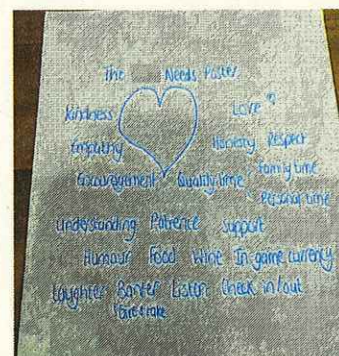 The Needs Poster
Kindness Love
Empathy Honesty Respect
family time
Encouragement Quality time
Personal time
Understanding Patience Support
Humour Food Wine In-game currency
Laughter Banter Listen Check in/out
Give & take